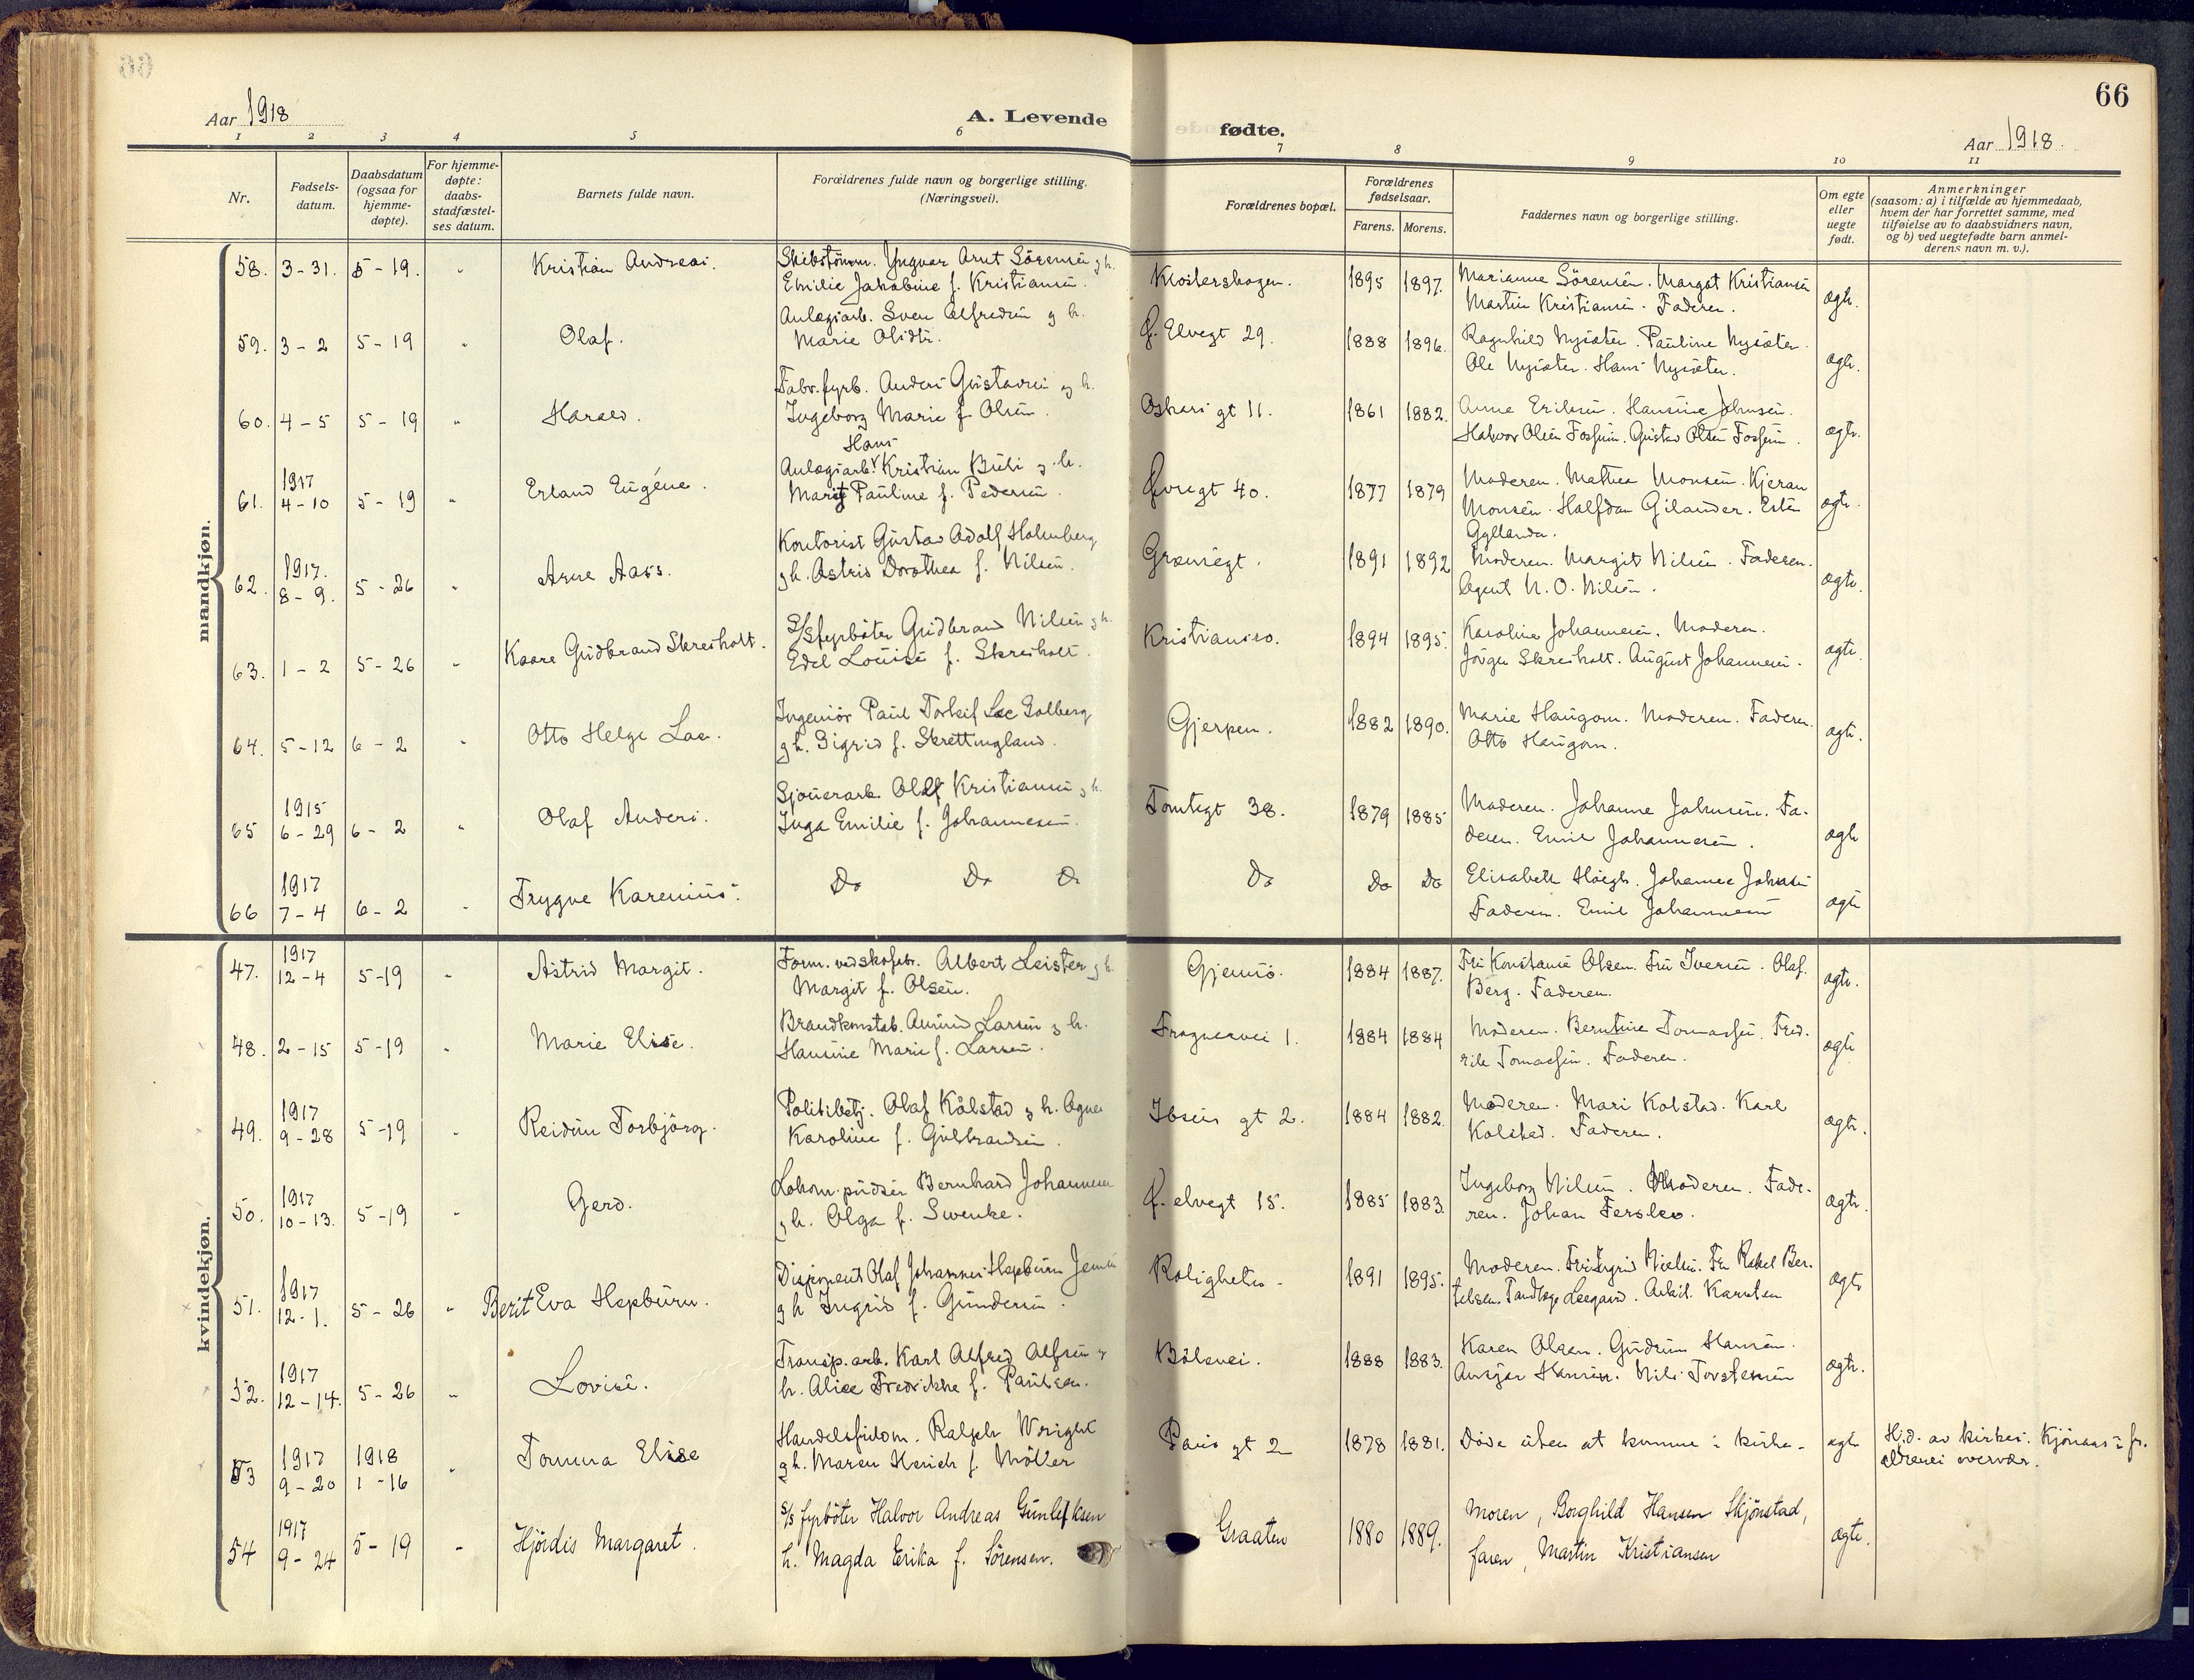 66
Aar 1918
A. Levende fødte.
Aar 1918.
1 2 3 4 5 6 7 8 9 10 11
Nr.
Fødsels-
datum.
Daabsdatum
(ogsaa for
hjemme-
døpte).
For hjemme-
døpte:
daabs-
stadfæstel-
ses datum.
Barnets fulde navn.
Forældrenes fulde navn og borgerlige stilling.
(Næringsvei).
Forældrenes bopæl.
Forældrenes
fødselsaar.
Farens. Morens.
Faddernes navn og borgerlige stilling.
Om egte
eller
uegte
født.
Anmerkninger
(saasom: a) i tilfælde av hjemmedaab,
hvem der har forrettet samme, med
tilføielse av to daabsvidners navn,
og b) ved uegtefødte barn anmel-
derens navn m. v.).
mandkjøn.
58. 3-31. 5-19. " Kristian Andreas.
Skibstömm. Yngvar Arnt Sörensen g h.
Emilie Jakobine f. Kristiansen.
Klostershagen. 1895 1897.
Marianne Sörensen. Margot Kristiansen
Martin Kristiansen. Faderen.
ægte.
59. 3-2 5-19 " Olaf.
Anlægsarb. Sven Alfredsen g h.
Marie Olsdtr.
Ø. Elvegt 29. 1888 1896.
Ragnhild Nysæter. Pauline Nysæter.
Ole Nysæter. Hans Nysæter.
ægte.
60. 4-5 5-19 " Harald.
Fabr.fyrb. Anders Gustavsen g h.
Ingeborg Marie f. Olsen.
Oskars gt 11. 1861 1882.
Anne Eriksen. Hansine Johnsen.
Halvor Olsen Fossum. Gustav Olsen Fossum.
ægte.
61. 1917 4-10 5-19 " Erland Eugéne.
Hans
Anlægsarb. Kristian Buli g. h.
Marit Pauline f. Pedersen.
Øvregt 40. 1877 1879
Moderen. Mathea Monsen. Kjeran
Monsen. Halfdan Gilander. Ester
Gyllander.
ægte.
62. 1917. 8-9. 5-26 " Arne Aass.
Kontorist Gustav Adolf Holmberg
g h. Astrid Dorothea f. Nilsen.
Grænsegt. 1891 1892
Moderen. Margit Nilsen. Faderen.
Agent N. O. Nilsen.
ægte.
63. 1-2 5-26 " Kaare Gudbrand Skresholt.
S/Sfyrböter Gudbrand Nilsen g h.
Edel Louise f. Skresholt.
Kristiania. 1894 1895.
Karoline Johannesen. Moderen.
Jörgen Skresholt. August Johannesen.
ægte.
64. 5-12 6-2 " Otto Helge Lae.
Ingeniör Paul Torleif Lae Solberg
g h. Sigrid f. Skrettingland.
Gjerpen. 1882 1890.
Marie Haugom. Moderen. Faderen.
Otto Haugom.
ægte.
65 1915 6-29 6-2 " Olaf Anders.
Sjauerarb. Olaf Kristiansen g h.
Inga Emilie f. Johannesen.
Tomtegt 38. 1879 1885
Moderen. Johanne Johnsen. Fa-
deren. Emil Johannesen.
ægte
66 1917 7-4 6-2 " Trygve Karenius.
Do Do Do Do Do Do
Elisabeth Höegh. Johanne Johnsen
Faderen. Emil Johannesen
ægte
kvindekjøn.
47. 1917 12-4 5-19 " Astrid Margit.
Form. ved skofabr. Albert Leister g h.
Margit f. Olsen.
Gjemsö. 1884 1887.
Fru Konstanse Olsen. Fru Iversen. Olaf
Berg. Faderen.
ægte.
48. 2-15 5-19 " Marie Elise.
Brandkonstab. Amund Larsen g h.
Hansine Marie f. Larsen.
Frognervei 1. 1884 1884
Moderen. Berntine Tomassen. Fred-
rik Tomassen. Faderen.
ægte
49. 1917 9-28 5-19 " Reidun Torbjörg.
Politibetj. Olaf Kålstad g h. Agnes
Karoline f. Gulbrandsen.
Ibsens gt 2. 1884 1882.
Moderen. Mari Kolstad. Karl
Kolstad. Faderen.
ægte.
50. 1917 10-13. 5-19 " Gerd.
Lokom.pudser Bernhard Johannesen
g h. Olga f. Swenke.
Ø. elvegt 15. 1885 1883.
Ingeborg Nilsen. Moderen. Fade-
ren. Johan Ferslev.
ægte.
51. 1917 12-1. 5-26 " Berit Eva Hepburn.
Disponent Olaf Johannes Hepburn Jensen
g h Ingrid f. Gundersen.
Roligheten 1891 1895.
Moderen. Fru Sigrid Nielsen. Fru Rakel Ber-
telsen. Tandlæge Leegaard. Arkit. Karsten
ægte
52. 1917 12-14. 5-26 " Lovise.
Transp.arb. Karl Alfred Alfsen g
h. Alice Fredrikke f. Paulsen.
Bölevei. 1888 1883.
Karen Olsen. Gudrun Hansen.
Ansgar Hansen. Nils Torstensen
ægte.
53 1917 9-20 1918 1-16 " Tomma Elise
Handelsfuldm. Ralph Wright
g h. Maren Henich f. Möller
Paus gt 2 1878 1881.
Döde uten at komme i kirke.
ægte
Hj.d. av kirkes. Kjönaas i for-
ældrenes overvær.
54 1917 9-24 5-19 " Hjördis Margaret.
S/S fyrböter Halvor Andreas Gunleiksen
h. Magda Erika f. Sörensen.
Graaten 1880 1889.
Moren, Borghild Hansen Skjönstad,
faren, Martin Kristiansen
ægte.